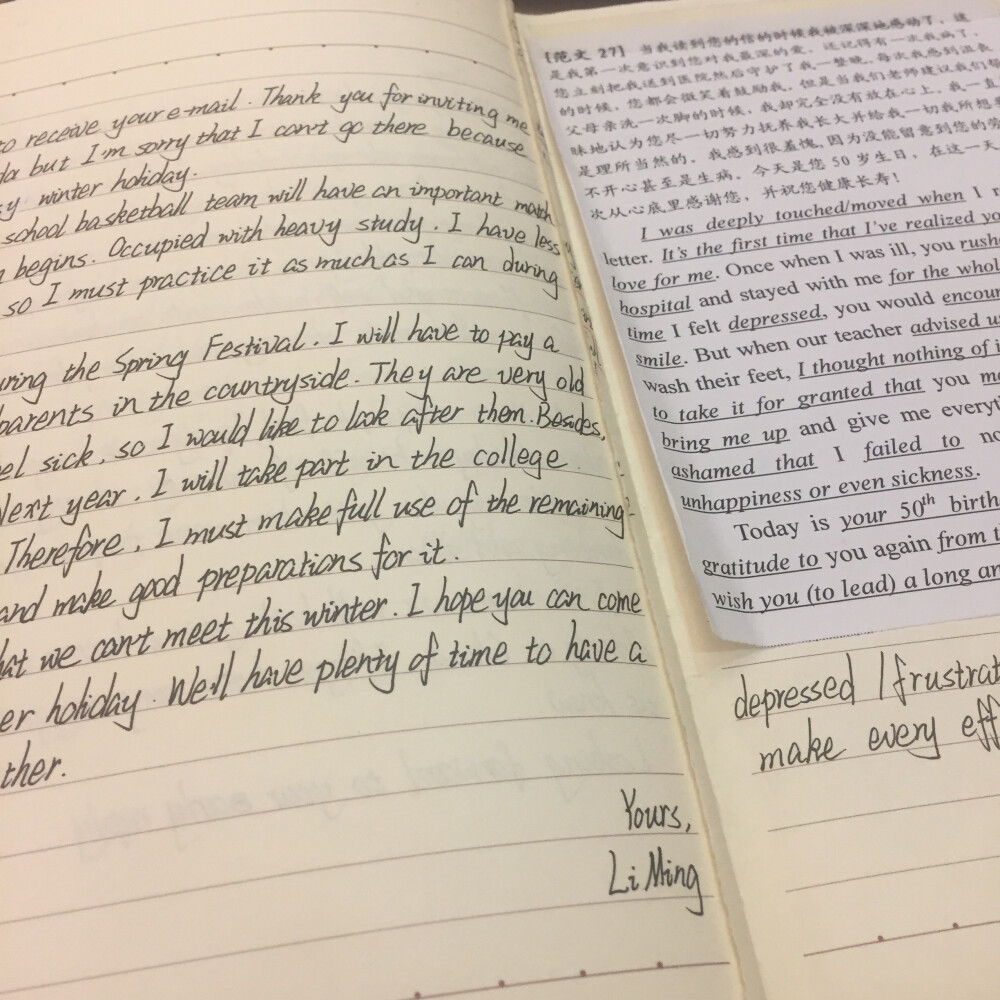 to receive your e-mail. Thank you for inviting me
but I'm sorry that I can't go there because
winter holiday.
school basketball team will have an important match
begins. Occupied with heavy study. I have less
so I must practice it as much as I can during
the Spring Festival. I will have to pay a
parents in the countryside. They are very old
sick, so I would like to look after them. Besides,
Next year. I will take part in the college
Therefore, I must make full use of the remaining
and make good preparations for it.
we can't meet this winter. I hope you can come
er holiday. We'll have plenty of time to have a
ther.
Yours,
Li Ming
[范文 27] 当我读到您的信的时候我被深深地感动了，这
是我第一次意识到您对我最深的爱。还记得有一次我病了，
您立刻把我送到医院然后守护了我一整晚。每次我感到沮丧
的时候，您都会微笑着鼓励我。但是当我们老师建议我们帮
父母亲洗一次脚的时候，我却完全没有放在心上。我一直
昧地认为您尽一切努力抚养我长大并给我一切我所想
是理所当然的。我感到很羞愧，因为没能留意到您的劳
不开心甚至是生病。今天是您 50 岁生日，在这一天
次从心底里感谢您，并祝您健康长寿！
I was deeply touched/moved when I r
letter. It's the first time that I've realized yo
love for me. Once when I was ill, you rush
hospital and stayed with me for the whol
time I felt depressed, you would encour
smile. But when our teacher advised us
wash their feet, I thought nothing of i
to take it for granted that you ma
bring me up and give me everyt
ashamed that I failed to no
unhappiness or even sickness.
Today is your 50th birth
gratitude to you again from t
wish you (to lead) a long an
depressed /frustrat
make every eff